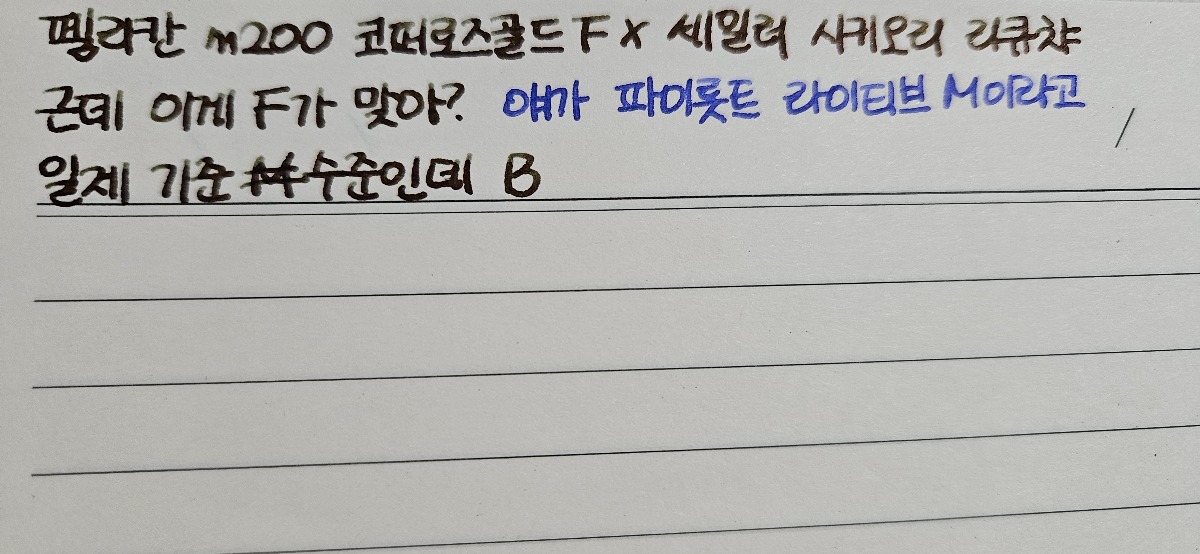 펠리칸 m200 코퍼로즈골드 F X 세일러 시키오리 리큐챠
근데 이게 F가 맞아? 얘가 파이롯트 라이티브 M이라고
일제 기준 M 수준인데 B